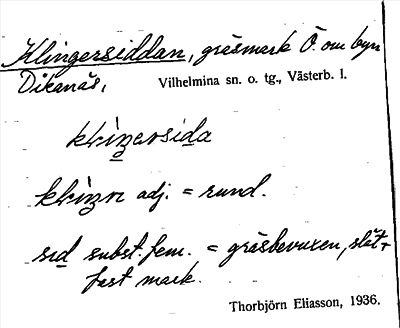 Klingersiddan, gräsmark Ö. om byn
Dikanäs, Vilhelmina sn. o. tg., Västerb. l.
adj. = rund.
subst. fem. = gräsbevuxen, slät,
fast mark.
Thorbjörn Eliasson, 1936.